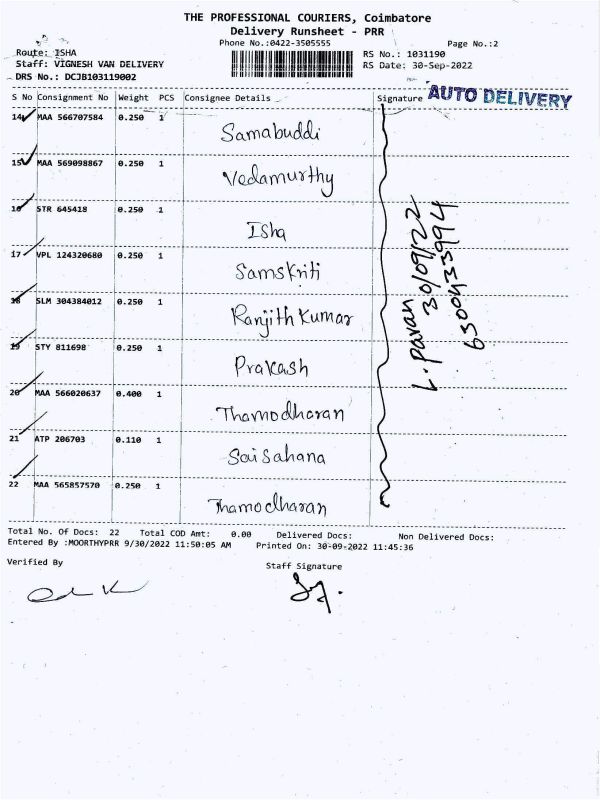 THE PROFESSIONAL COURIERS, Coimbatore
Delivery Runsheet - PRR
Phone No.:0422-3505555
Page No.:2
Route: ISHA
RS No.: 1031190
Staff: VIGNESH VAN DELIVERY
RS Date: 30-Sep-2022
DRS No.: DCJB103119002
AUTO DELIVERY
S No Consignment No Weight PCS Consignee Details Signature
14 MAA 566707584 0.250 1 Samabuddi
15 MAA 569098867 0.250 1 Vedamurthy
16 STR 645418 0.250 1 Isha
17 VPL 124320680 0.250 1 Samskriti
18 SLM 304384012 0.250 1 Ranjith Kumar
19 STY 811698 0.250 1 Prakash
20 MAA 566020637 0.400 1 Thamodharan
21 ATP 206703 0.110 1 Sai Sahana
22 MAA 565857570 0.250 1 Thamodharan
L. Pavan
30/09/22
6300433994
Total No. Of Docs: 22 Total COD Amt: 0.00 Delivered Docs: Non Delivered Docs:
Entered By :MOORTHYPRR 9/30/2022 11:50:05 AM Printed On: 30-09-2022 11:45:36
Verified By
Staff Signature